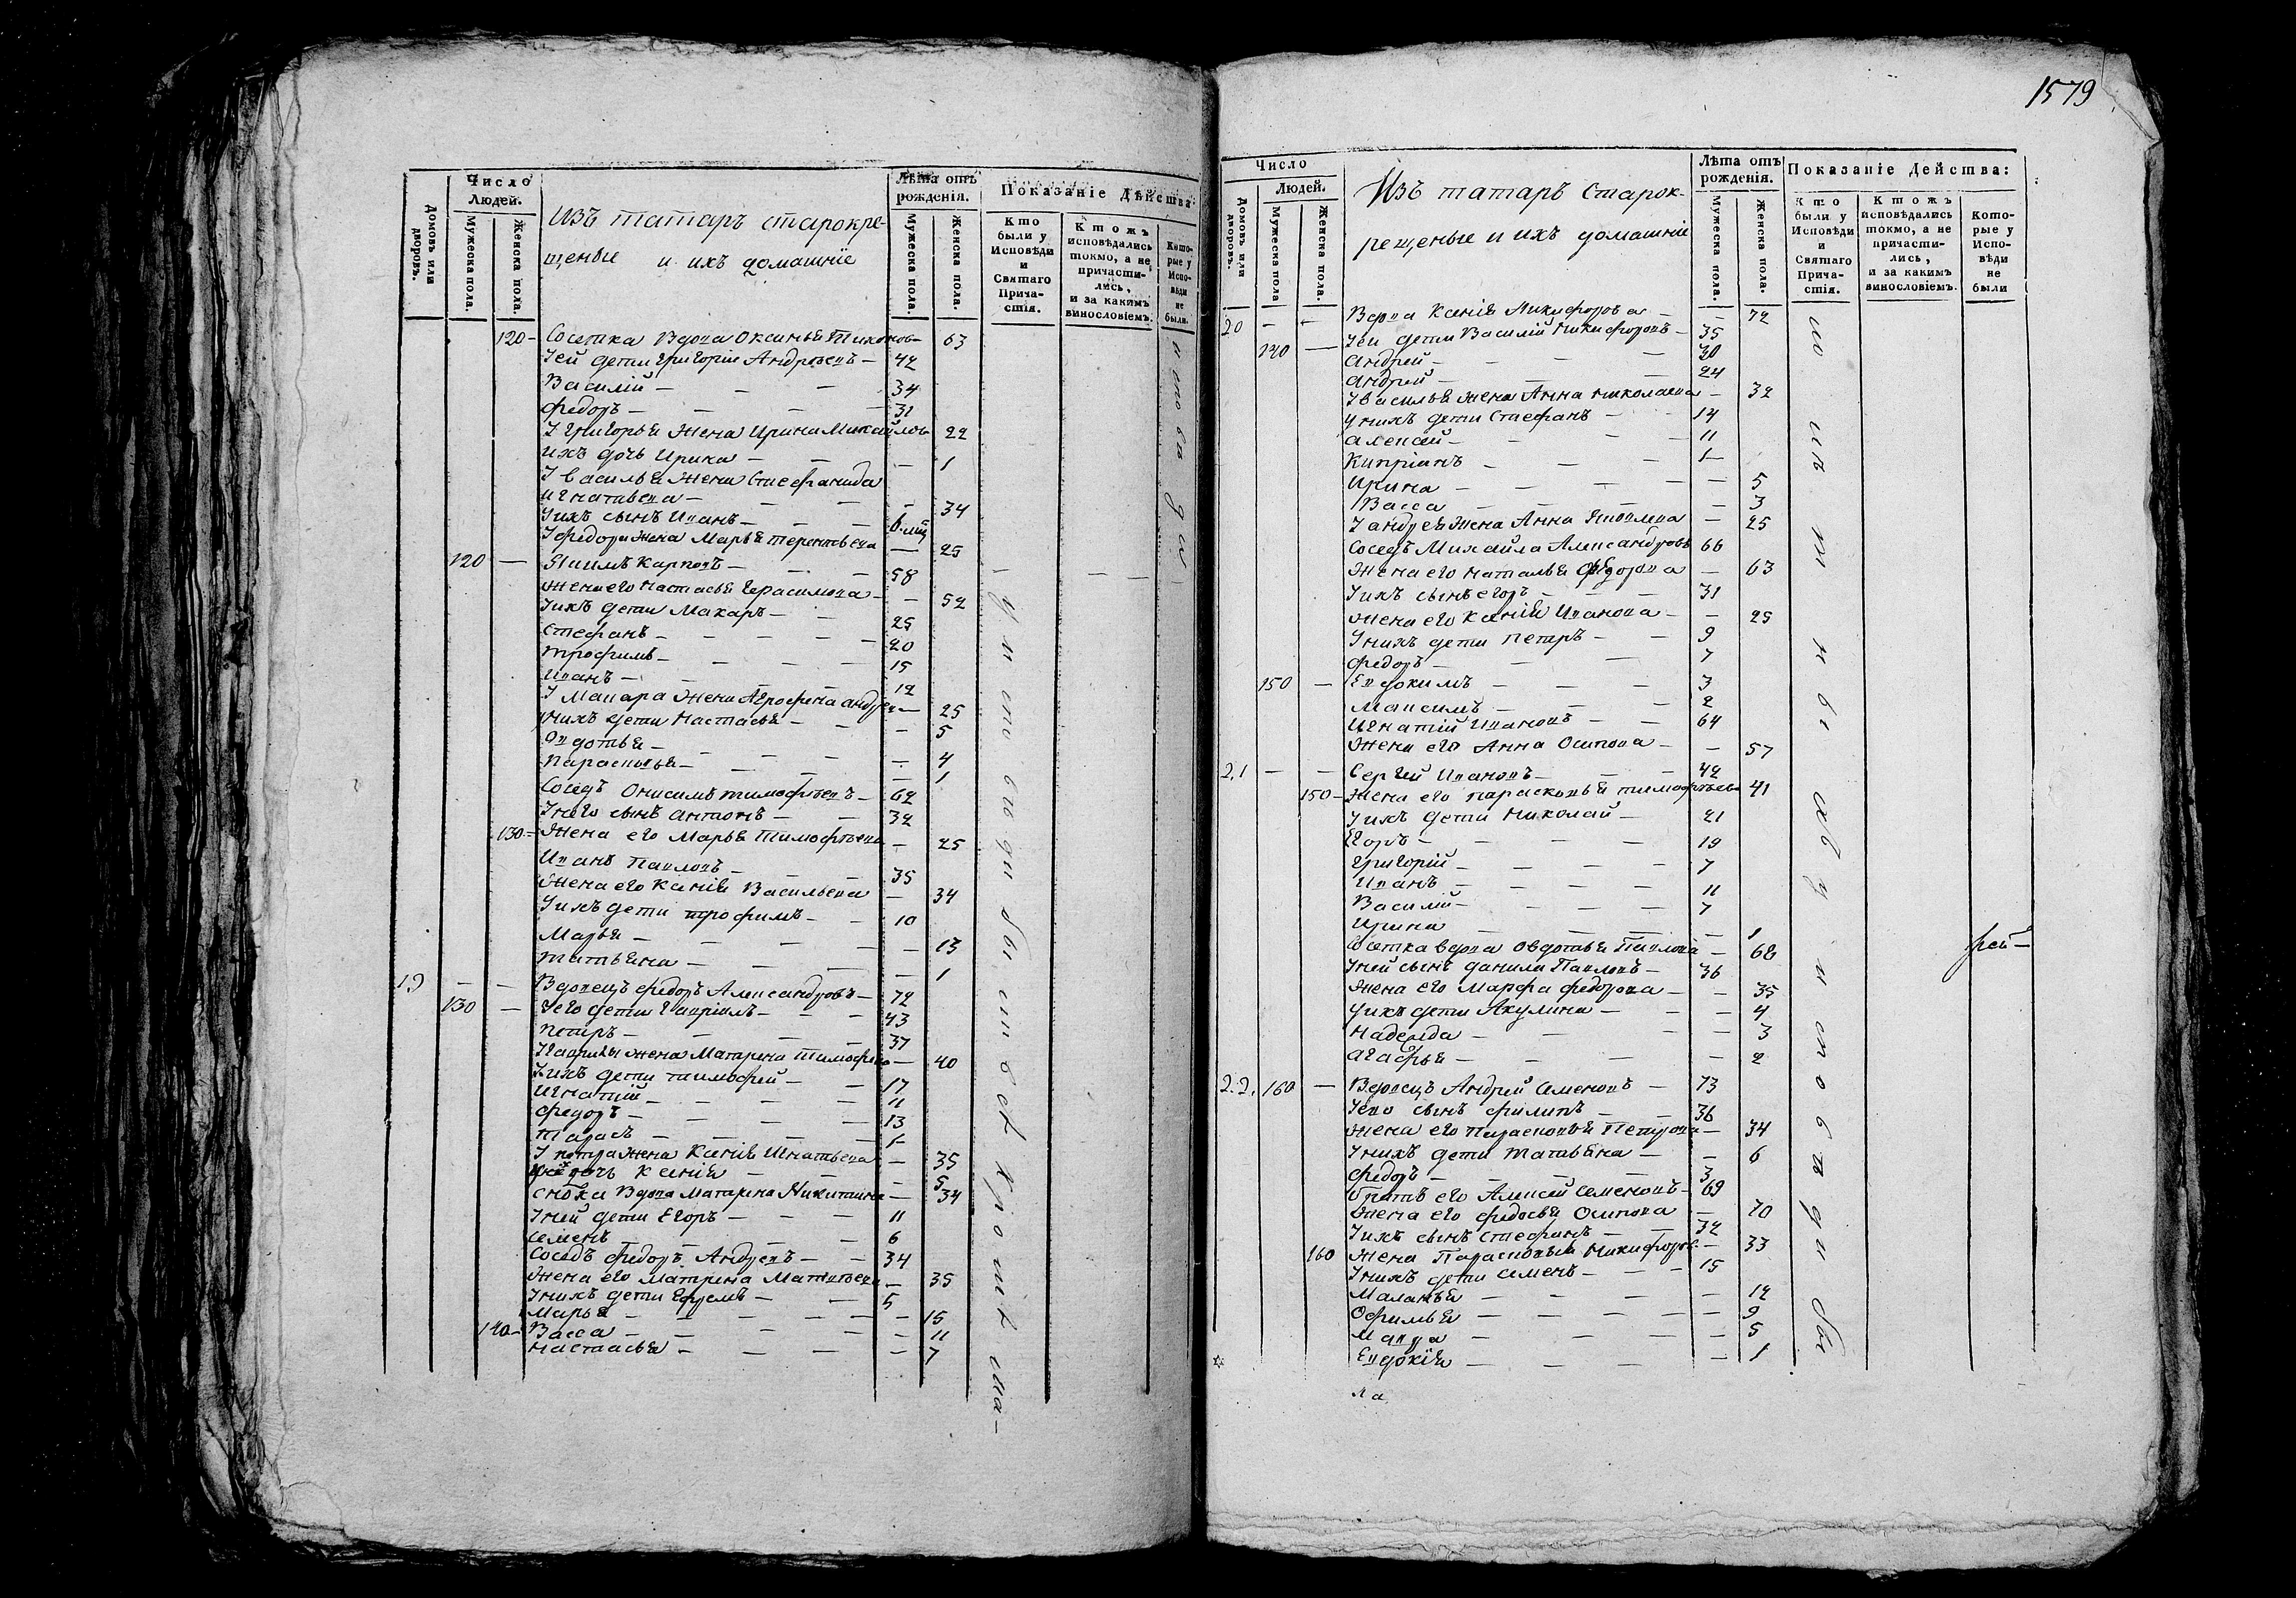 1579
Число
Людей.
Домовъ или дворовъ.
Мужеска пола.
Женска пола.
Изъ татаръ старокре-
щеные и ихъ домашніе
Лѣта отъ рожденія.
Мужеска пола.
Женска пола.
Показаніе Дѣйства:
Кто были у Исповѣди и Святаго Прича-стія.
Ктожъ исповѣдались токмо, а не причасти-лись, и за какимъ винословіемъ.
Кото-рые у Испо-вѣди не были.
120 - Соседка Вдова Оксинья Тихонов- 63
Уей дети Григорій Андрѣевъ - 42
Василій - - - 34
Федоръ - - - 31
У Григорья жена Ирина Михайлов- 22
ихъ дочь Ирина - - - 1
У Василья жена Стефанида
Игнатьева - - - 34
Уихъ сынъ Иванъ - - 6. мѣ
У Федора жена Марья Терентьева - 25
120 - Якимъ Карповъ - - - 58
Жена его Настасья Герасимова - - 52
Уихъ дети Макаръ - - 25
Стефанъ - - - - 20
Трофимъ - - - 15
Иванъ - - - - 12
У Макара жена Агрофина Андре - 25
Унихъ дети Настасья - - - 5
Овдотья - - - - 4
Парасковья - - - - 1
Соседъ Онисимъ Тимофѣевъ - 62
Унего сынъ Антонъ - - 32
130 - Жена его Марья Тимофѣева - 25
Иванъ Павловъ - - 35
Жена его Ксинія Васильева - 34
Уихъ дети Трофимъ - - 10
Марья - - - - - 13
Татьяна - - - - 1
19 - - Вдовецъ Федоръ Александровъ - 72
130 - Уего дети Гавріилъ - - 43
Петръ - - - - 37
У Гаврилы жена Матрена Тимофѣе - 40
Уихъ дети Тимофей - - 17
Игнатій - - - - 11
Федоръ - - - - 13
Тарасъ - - - - 1
У Петра жена Ксинія Игнатьева - 35
дочь Ксинія - - - 5
Сноха Вдова Матрена Никитина - 34
Уней дети Егоръ - - - 11
Семенъ - - - - 6
Соседъ Федоръ Андреевъ - - 34
Жена его Матрена Матвѣева - 35
Унихъ дети Ефремъ - - 5
Марья - - - - - 15
140 - Васса - - - - - 11
Настасья - - - - 7
Число
Людей.
Домовъ или дворовъ.
Мужеска пола
Женска пола.
Изъ татаръ старок-
рещеные и ихъ домашніе
Лѣта отъ рожденія.
Мужеска пола.
Женска пола.
Показаніе Дѣйства:
Кто были у Исповѣди и Святаго Прича-стія.
Ктожъ исповѣдались токмо, а не причасти-лись, и за какимъ винословіемъ.
Кото-рые у Испо-вѣди не были
20 - - Вдова Ксинія Никифорова - - 72
Уеи дети Василій Никифоровъ - 35
140 - Андрей - - - 30
Андрей - - - 24
У Василья жена Анна Николаева - 32
Унихъ дети Стефанъ - - 14
Алексей - - - - 11
Кипріанъ - - - 1
Ирина - - - - - 5
Васса - - - - - 3
У Андрея жена Анна Яковлева - 25
Соседъ Михайла Александровъ 66
Жена его Наталья Федорова - 63
Уихъ сынъ Егоръ - - - 31
Жена его Ксинія Иванова - - 25
Унихъ дети Петръ - - 9
Федоръ - - - 7
150 - Евдокимъ - - - 3
Максимъ - - - 2
Игнатій Ивановъ - - 64
Жена его Анна Осипова - - 57
21 - - Сергей Ивановъ - - - 42
150 - Жена его Парасковья Тимофѣев- 41
Уихъ дети Николай - 21
Егоръ - - - - 19
Григорій - - - - 7
Иванъ - - - - 11
Василій - - - - 7
Ирина - - - - 1
Соседка вдова Овдотья Павлова - 62
Уней сынъ Данила Павловъ - 36
Жена его Марфа Федорова - - 35
Уихъ дети Акулина - - - 4
Надежда - - - - 3
Агафья - - - - 2
22. 160 - Вдовецъ Андрей Семеновъ - 73
Уево сынъ Филипъ - - 36
Жена его Парасковья Петрова - 34
Унихъ дети Татьяна - - 6
Федоръ - - - - 3
Братъ его Алексей Семеновъ - 69
Жена его Федосья Осипова - 70
Уихъ сынъ Стефанъ - - 32
160 Жена Парасковья Никифоров - 33
Унихъ дети Семенъ - - - 15
Маланья - - - - 12
Офимья - - - - - 9
Мавра - - - - 5
Евдокія - - - - 1